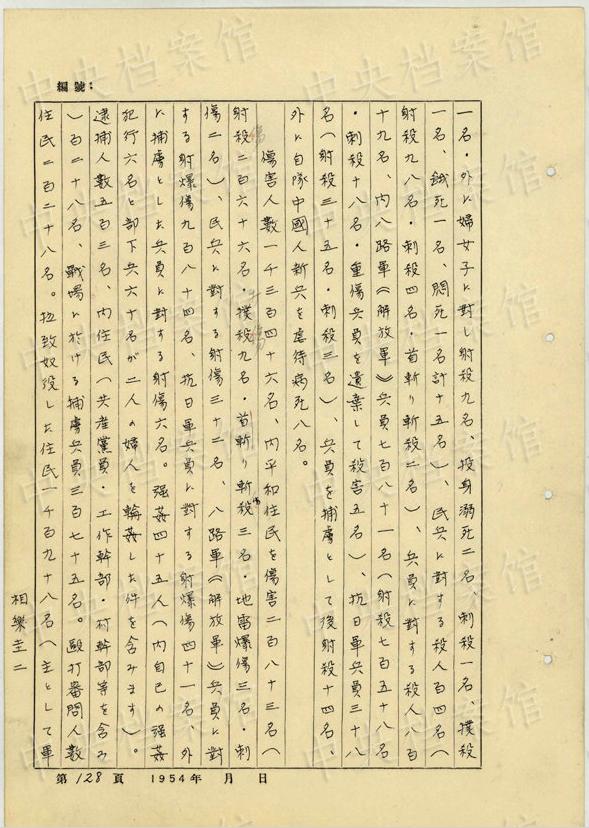 編號：
一名・外に婦女子に対し射殺九名、投身溺死二名、刺殺一名、撲殺
一名、餓死一名、悶死一名計十五名）、民兵に対する殺人百四名（
射殺九八名・刺殺四名・首斬り斬殺二名）、兵員に対する殺人八百
十九名、内八路軍《解放軍》兵員七百八十一名（射殺七百五十八名
・刺殺十八名・重傷兵員を遺棄して殺害五名）、抗日軍兵員三十八
名（射殺三十五名・刺殺三名）、兵員を捕虜として後射殺十四名、
外に自隊中國人新兵を虐待病死八名。
傷害人数一千三百四十六名、内平和住民を傷害二百八十三名（
射殺二百六十六名・撲殺九名・首斬り斬殺三名・地雷爆傷三名・刺
傷二名）、民兵に対する射傷三十二名、八路軍《解放軍》兵員に対
する射爆傷九百八十四名、抗日軍兵員に対する射爆傷四十一名、外
に捕虜とした兵員に対する射傷六名。强姦四十五人（内自己の强姦
犯行六名と部下兵六十名が二人の婦人を輪姦した件を含みます）。
逮捕人数五百三名、内住民（共産黨員・工作幹部・村幹部等を含み
）百二十八名、戰場に於ける捕虜兵員三百七十五名。毆打審問人数
住民二百二十八名。拉致奴役した住民一千百九十八名（主として軍
相樂圭二
第128頁 1954年 月 日
中央档案馆